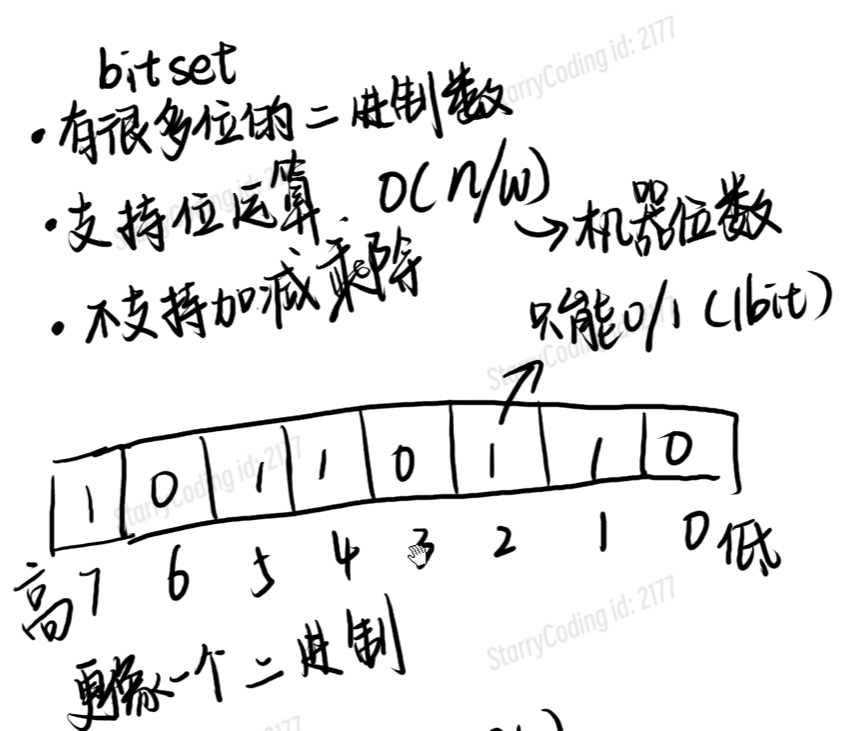 bitset
StarryCoding id: 2177
• 有很多位的二进制数
• 支持位运算. O(n/w)
→ 机器位数
• 不支持加减乘除
只能0/1 (1bit)
StarryCoding id: 2177
1 0 1 1 0 1 1 0
StarryCoding id: 2177
高 7 6 5 4 3 2 1 0 低
StarryCoding id: 2177
更像一个二进制